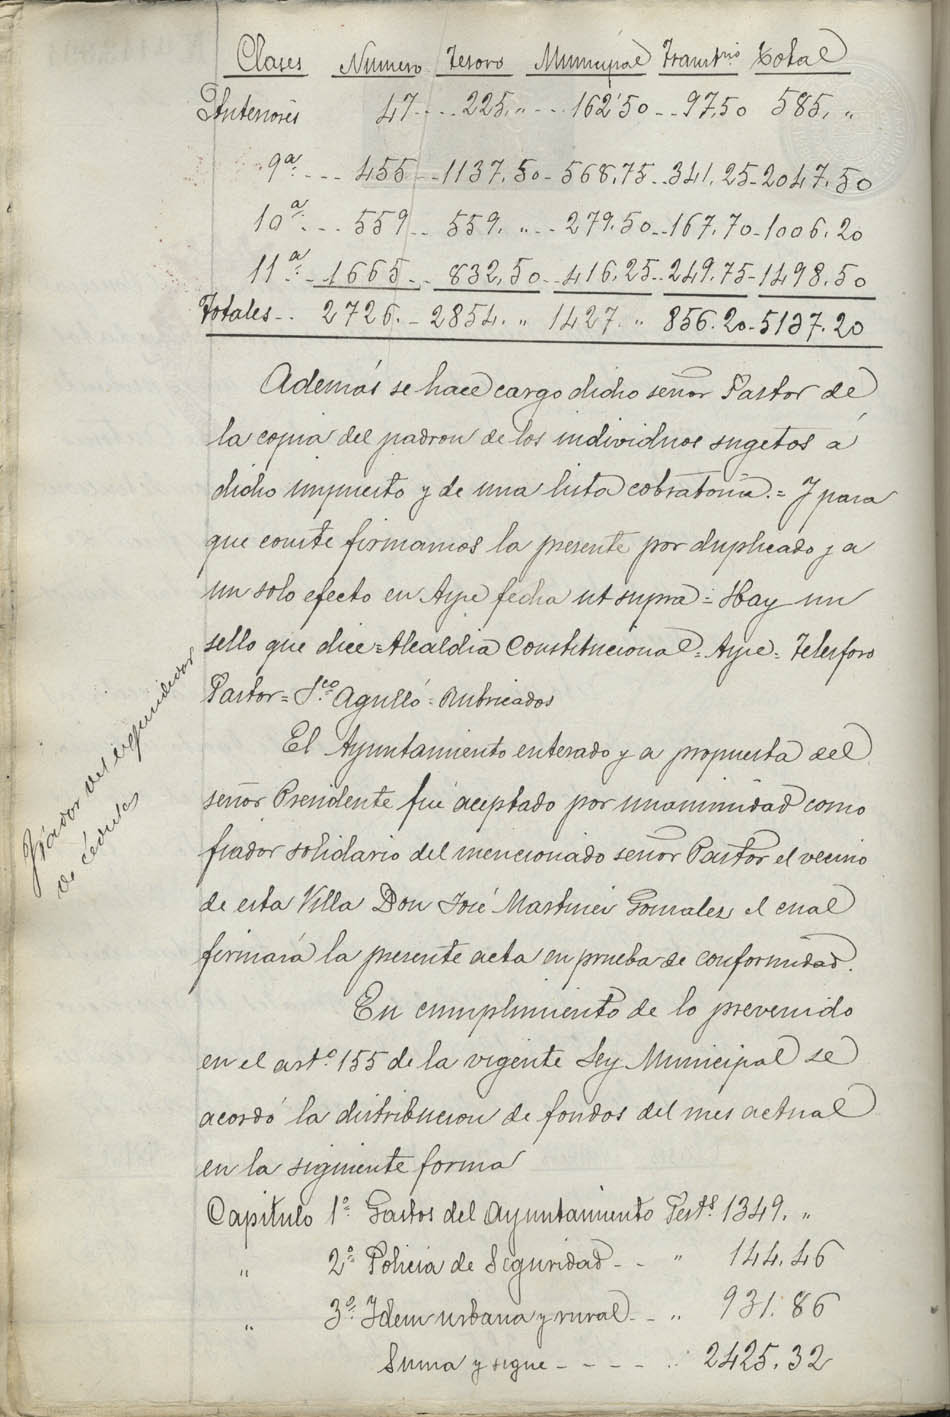 Clases Numero Tesoro Municipal Transit.rio Total
Anteriores 47 .... 225. „ ... 162'50 .. 97.50 585. „
9ª. ... 455 .. 1137.50 - 568.75 .. 341.25 - 2047.50
10ª. ... 559 .. 559. „ ... 279.50 .. 167.70 - 1006.20
11ª. .. 1665 .. 832,50 .. 416.25 .. 249.75 - 1498.50
Totales .. 2726. - 2854. „ 1427. „ 856.20 - 5137.20
Además se hace cargo dicho señor Pastor de
la copia del padron de los individuos sugetos a
dicho impuesto y de una lista cobratoria. = Y para
que conste firmamos la presente por duplicado y a
un solo efecto en Aspe fecha ut supra = Hay un
sello que dice = Alcaldia Constitucional = Aspe = Telesforo
Pastor = Fco. Agulló = Rubricados
El Ayuntamiento enterado y a propuesta del
señor Presidente fué aceptado por unanimidad como
fiador solidario del mencionado señor Pastor el vecino
de esta Villa Don José Martinez Gonzalez, el cual
firmará la presente acta en prueba de conformidad.
Fiador del expendedor
de cédulas
En cumplimiento de lo prevenido
en el artº. 155 de la vigente Ley Municipal se
acordó la distribucion de fondos del mes actual
en la siguiente forma
Capitulo 1º. Gastos del Ayuntamiento Pest.s 1349. „
„ 2º. Policia de Seguridad - - „ 144.46
„ 3º. Idem urbana y rural - - „ 931.86
Suma y sigue - - - - - „ 2425.32